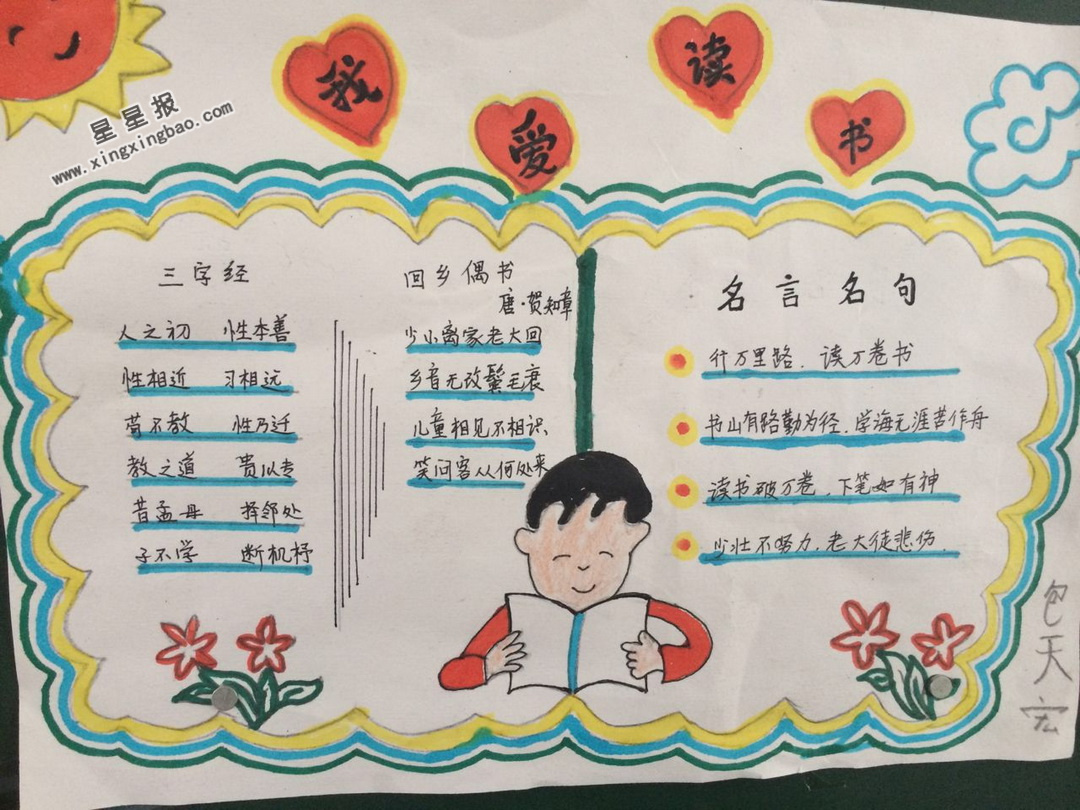 我爱读书
星星报
www.xingxingbao.com
三字经
人之初 性本善
性相近 习相远
苟不教 性乃迁
教之道 贵以专
昔孟母 择邻处
子不学 断机杼
回乡偶书
唐·贺知章
少小离家老大回
乡音无改鬓毛衰
儿童相见不相识
笑问客从何处来
名言名句
行万里路、读万卷书
书山有路勤为径、学海无涯苦作舟
读书破万卷、下笔如有神
少壮不努力、老大徒悲伤.
包天